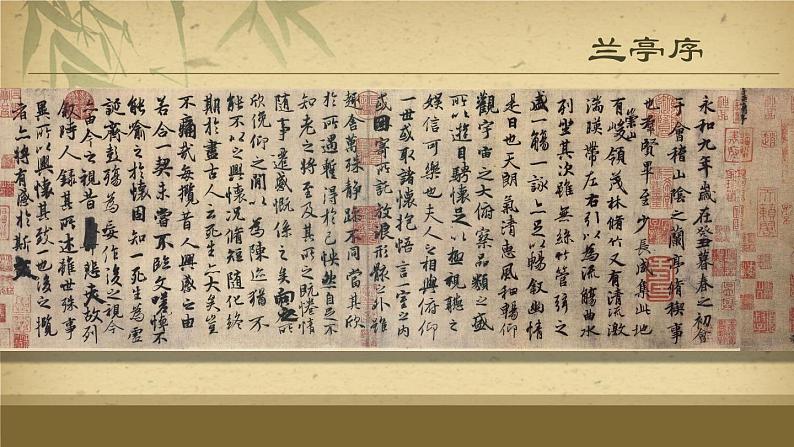 兰亭序
永和九年歲在癸丑暮春之初會
于會稽山陰之蘭亭脩稧事
也羣賢畢至少長咸集此地
有崇山峻領茂林脩竹又有清流激
湍暎帶左右引以為流觴曲水
列坐其次雖無絲竹管弦之
盛一觴一詠亦足以暢叙幽情
是日也天朗氣清惠風和暢仰
觀宇宙之大俯察品類之盛
所以遊目騁懷足以極視聽之
娛信可樂也夫人之相與俯仰
一世或取諸懷抱悟言一室之內
或因寄所託放浪形骸之外雖
趣舍萬殊靜躁不同當其欣
於所遇蹔得於己怏然自足不
知老之將至及其所之既惓情
隨事遷感慨係之矣向之所
欣俛仰之閒以為陳迹猶不
能不以之興懷況脩短隨化終
期於盡古人云死生亦大矣豈
不痛哉每攬昔人興感之由
若合一契未嘗不臨文嗟悼不
能喻之於懷固知一死生為虛
誕齊彭殤為妄作後之視今
亦由今之視昔悲夫故列
叙時人錄其所述雖世殊事
異所以興懷其致一也後之攬
者亦將有感於斯文